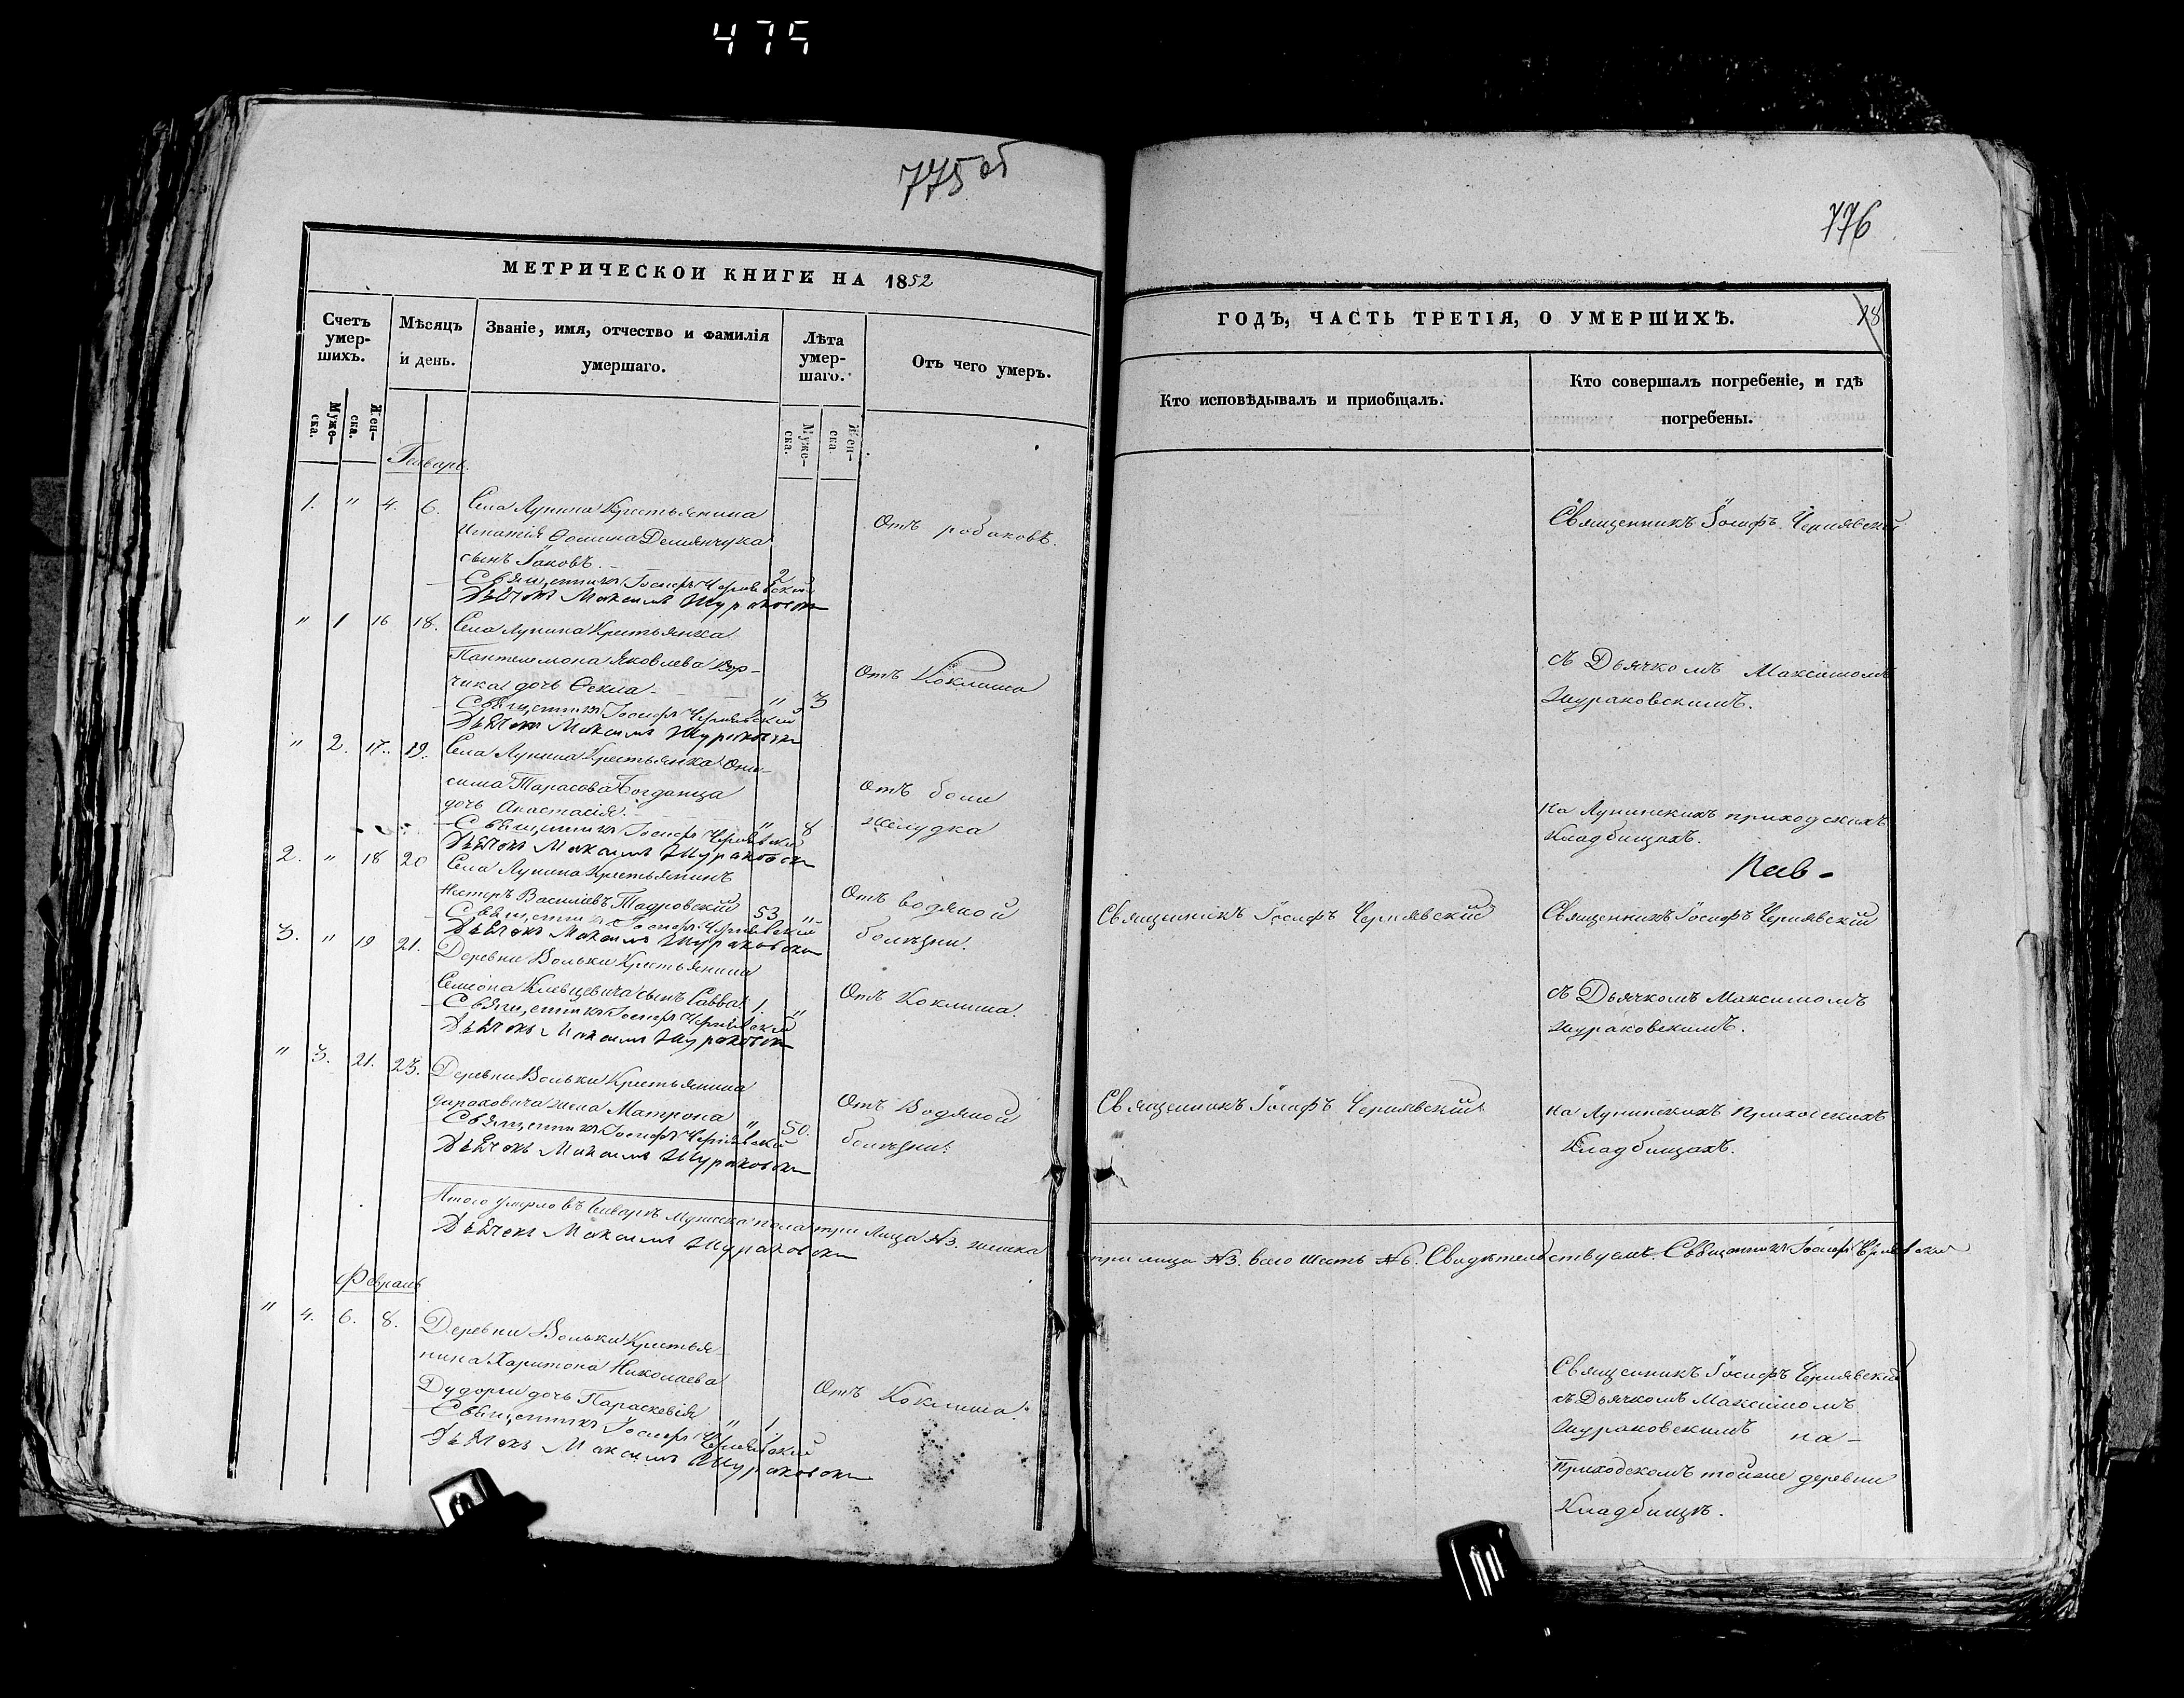 475
775 об
МЕТРИЧЕСКОЙ КНИГИ НА 1852
Счетъ умер-шихъ.
Муже-ска.
Жен-ска.
Мѣсяцъ и день.
Званіе, имя, отчество и фамилія умершаго.
Лѣта умер-шаго.
Муже-ска.
Жен-ска
Отъ чего умеръ.
Генварь.
1. " 4. 6. Села Лунина Крестьянина
Игнатія Ѳомина Демянчука
сынъ Іаковъ. 2
Отъ робаковъ.
Священникъ Іосифъ Чернявскій
Дьячокъ Максимъ Жураковски
" 1 16 18. Села Лунина Крестьянка
Пантелемона Яковлева Кор-
чика дочь Ѳекла " 3
Отъ Коклюша
Священникъ Іосифъ Чернявскій
Дьячокъ Максимъ Жураковски
" 2. 17. 19. Села Лунина Крестьянка Они-
сима Тарасова Богданца
дочь Анастасія. " 8
Отъ боли
желудка
Священникъ Іосифъ Чернявскій
Дьячокъ Максимъ Жураковски
2. " 18 20 Села Лунина Крестьянинъ
Нестеръ Василіевъ 53 "
Отъ водяной
болѣзни.
Священникъ Іосифъ Чернявскій
Дьячокъ Максимъ Жураковски
3. " 19 21. Деревни Вольки Крестьянина
Семіона сынъ Савва 1. "
Отъ Коклюша.
Священникъ Іосифъ Чернявскій
Дьячокъ Максимъ Жураковски
" 3. 21. 23. Деревни Вольки Крестьянина
жена Матрона " 50.
Отъ Водяной
болѣзни.
Священникъ Іосифъ Чернявскій
Дьячокъ Максимъ Жураковски
Итого умерло въ Генварѣ Мужеска пола три лица №3. женска
Дьячокъ Максимъ Жураковски
Февраль
" 4. 6. 8. Деревни Вольки Крестья
нина Харитона Николаева
дочь Параскевія " 1
Отъ Коклюша.
Священникъ Іосифъ Чернявскій
Дьячокъ Максимъ Жураковски
776
ГОДЪ, ЧАСТЬ ТРЕТІЯ, О УМЕРШИХЪ.
28
Кто исповѣдывалъ и пріобщалъ.
Кто совершалъ погребеніе, и гдѣ
погребены.
Священникъ Іосифъ Чернявскій
съ Дьячкомъ Максимомъ
Жураковскимъ.
на Лунинскихъ приходскихъ
Кладбищахъ.
Священникъ Іосифъ Чернявскій
Священникъ Іосифъ Чернявскій
съ Дьячкомъ Максимомъ
Жураковскимъ.
Священникъ Іосифъ Чернявскій
на Лунинскихъ приходскихъ
Кладбищахъ.
три лица №3. всего шесть №6. Свидѣтельствуемъ. Священникъ Іосифъ Чернявскій
Священникъ Іосифъ Чернявскій
съ Дьячкомъ Максимомъ
Жураковскимъ на-
Приходскомъ тойже деревни
Кладбищѣ.